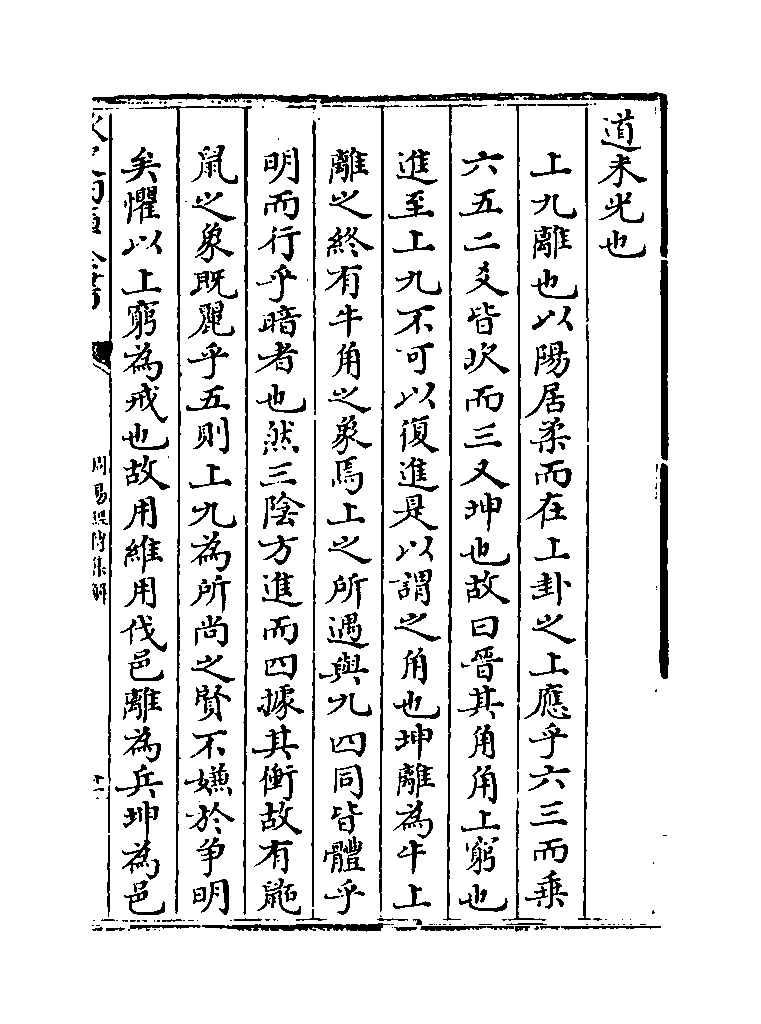 道未光也
上九離也以陽居柔而在上卦之上應乎六三而乗
六五二爻皆坎而三又坤也故曰晉其角角上窮也
進至上九不可以復進是以謂之角也坤離為牛上
離之終有牛角之象焉上之所遇與九四同皆體乎
明而行乎暗者也然三陰方進而四據其衝故有鼫
鼠之象既麗乎五則上九為所尚之賢不嫌於争明
矣懼以上窮為戒也故用維用伐邑離為兵坤為邑
周易經傳集解